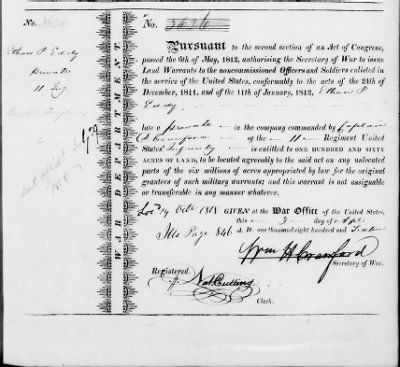 No. 3626
Ethan P Eddy
private
11 Reg
WAR DEPARTMENT
No. 3626
Pursuant to the second section of an Act of Congress,
passed the 6th of May, 1812, authorising the Secretary of War to issue
Land Warrants to the noncommissioned Officers and Soldiers enlisted in
the service of the United States, conformably to the acts of the 24th of
December, 1811, and of the 11th of January, 1812, Ethan P
Eddy.
late a private in the company commanded by Captain
of the 11 Regiment United
States' Infantry is entitled to ONE HUNDRED AND SIXTY
ACRES OF LAND, to be located agreeably to the said act on any unlocated
parts of the six millions of acres appropriated by law for the original
grantees of such military warrants; and this warrant is not assignable
or transferable in any manner whatever.
Loc. 19 Octr 1818 GIVEN at the War Office of the United States,
this 3 day of Apl
Ills Page 846 A. D. one thousand eight hundred and Sixteen
Wm H Crawford
Secretary of War.
Registered.
Nat. Cutting
Clerk.